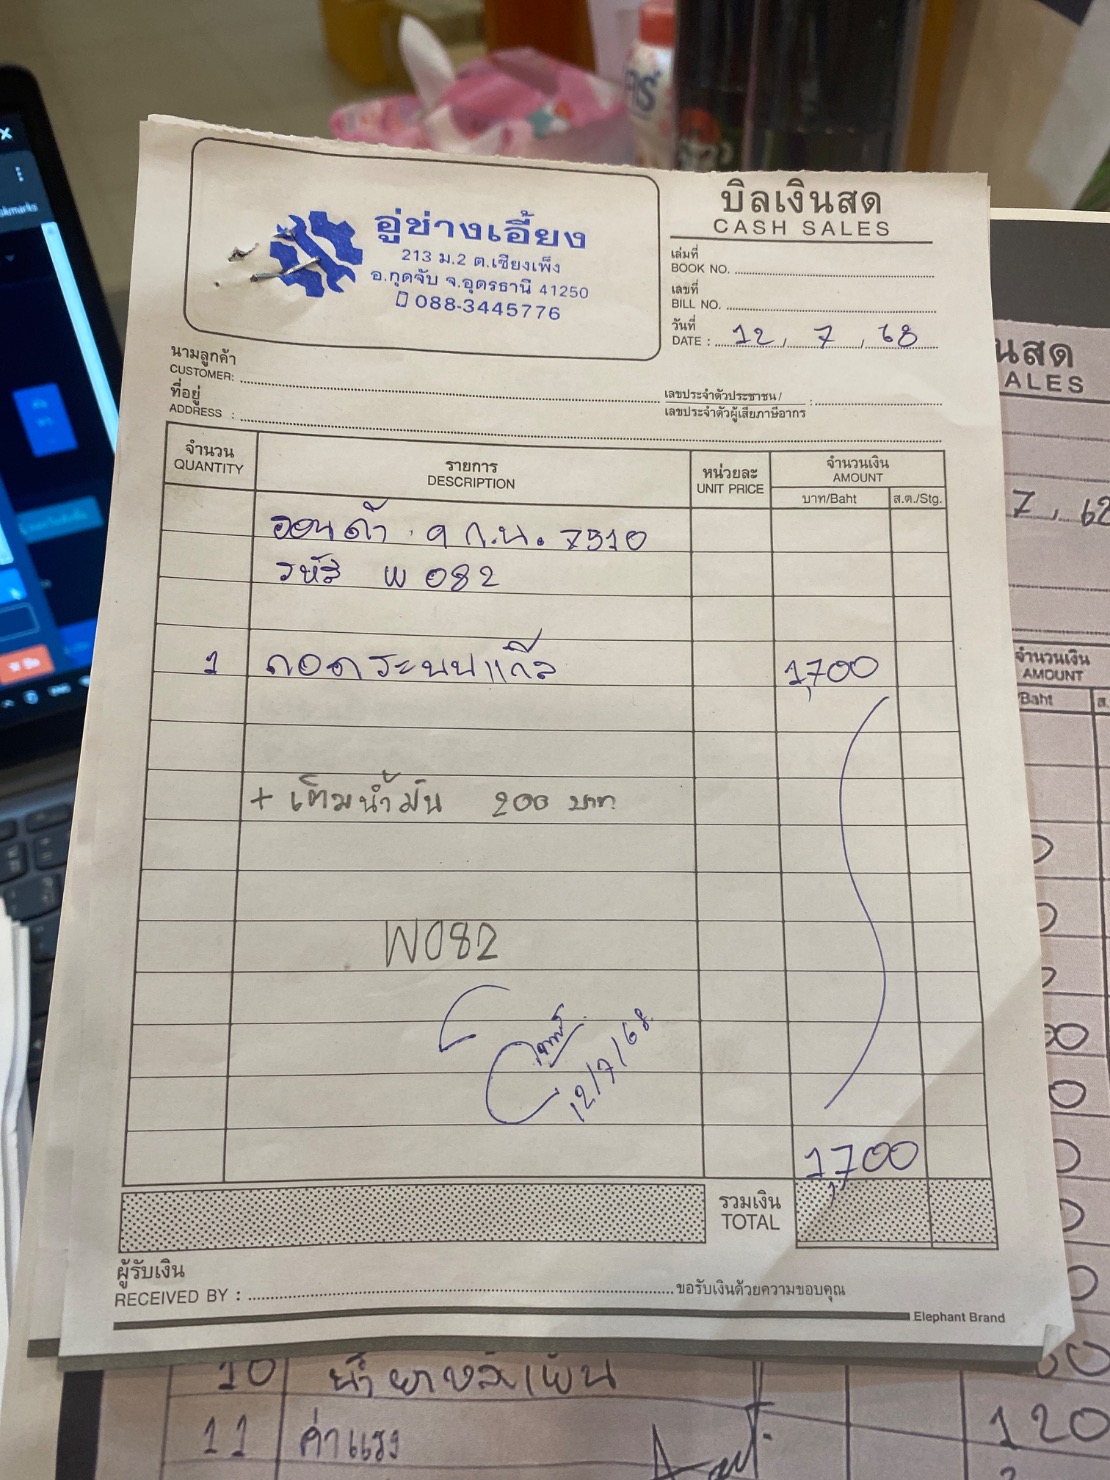 อู่ช่างเอี้ยง
213 ม.2 ต.เชียงเพ็ง
อ.กุดจับ จ.อุดรธานี 41250
088-3445776
บิลเงินสด
CASH SALES
เล่มที่
BOOK NO.
เลขที่
BILL NO.
วันที่
DATE : 12 , 7 , 68
นามลูกค้า
CUSTOMER:
ที่อยู่
ADDRESS :
เลขประจำตัวประชาชน/
เลขประจำตัวผู้เสียภาษีอากร :
จำนวน
QUANTITY
รายการ
DESCRIPTION
หน่วยละ
UNIT PRICE
จำนวนเงิน
AMOUNT
บาท/Baht
ส.ต./Stg.
ฮอนด้า . ๑ ก.น. 7510
รหัส W 082
1 ถอดระบบแก๊ส 1,700
+ เติมน้ำมัน 200 บาท
W082
12/7/68
1,700
รวมเงิน
TOTAL
ผู้รับเงิน
RECEIVED BY :
ขอรับเงินด้วยความขอบคุณ
Elephant Brand
นสด
ALES
7 , 68
จำนวนเงิน
AMOUNT
Baht
10
11 ค่าแรง 120